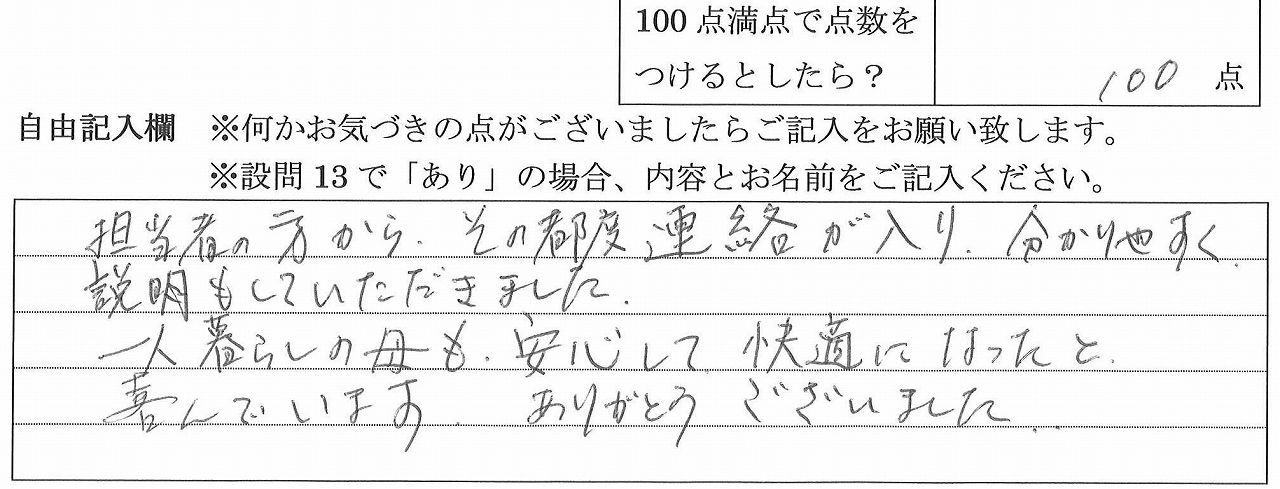 100点満点で点数を
つけるとしたら？
100 点
自由記入欄 ※何かお気づきの点がございましたらご記入をお願い致します。
※設問13で「あり」の場合、内容とお名前をご記入ください。
担当者の方から、その都度連絡が入り、分かりやすく、
説明もしていただきました。
一人暮らしの母も、安心して、快適になったと、
喜んでいます。 ありがとうございました。